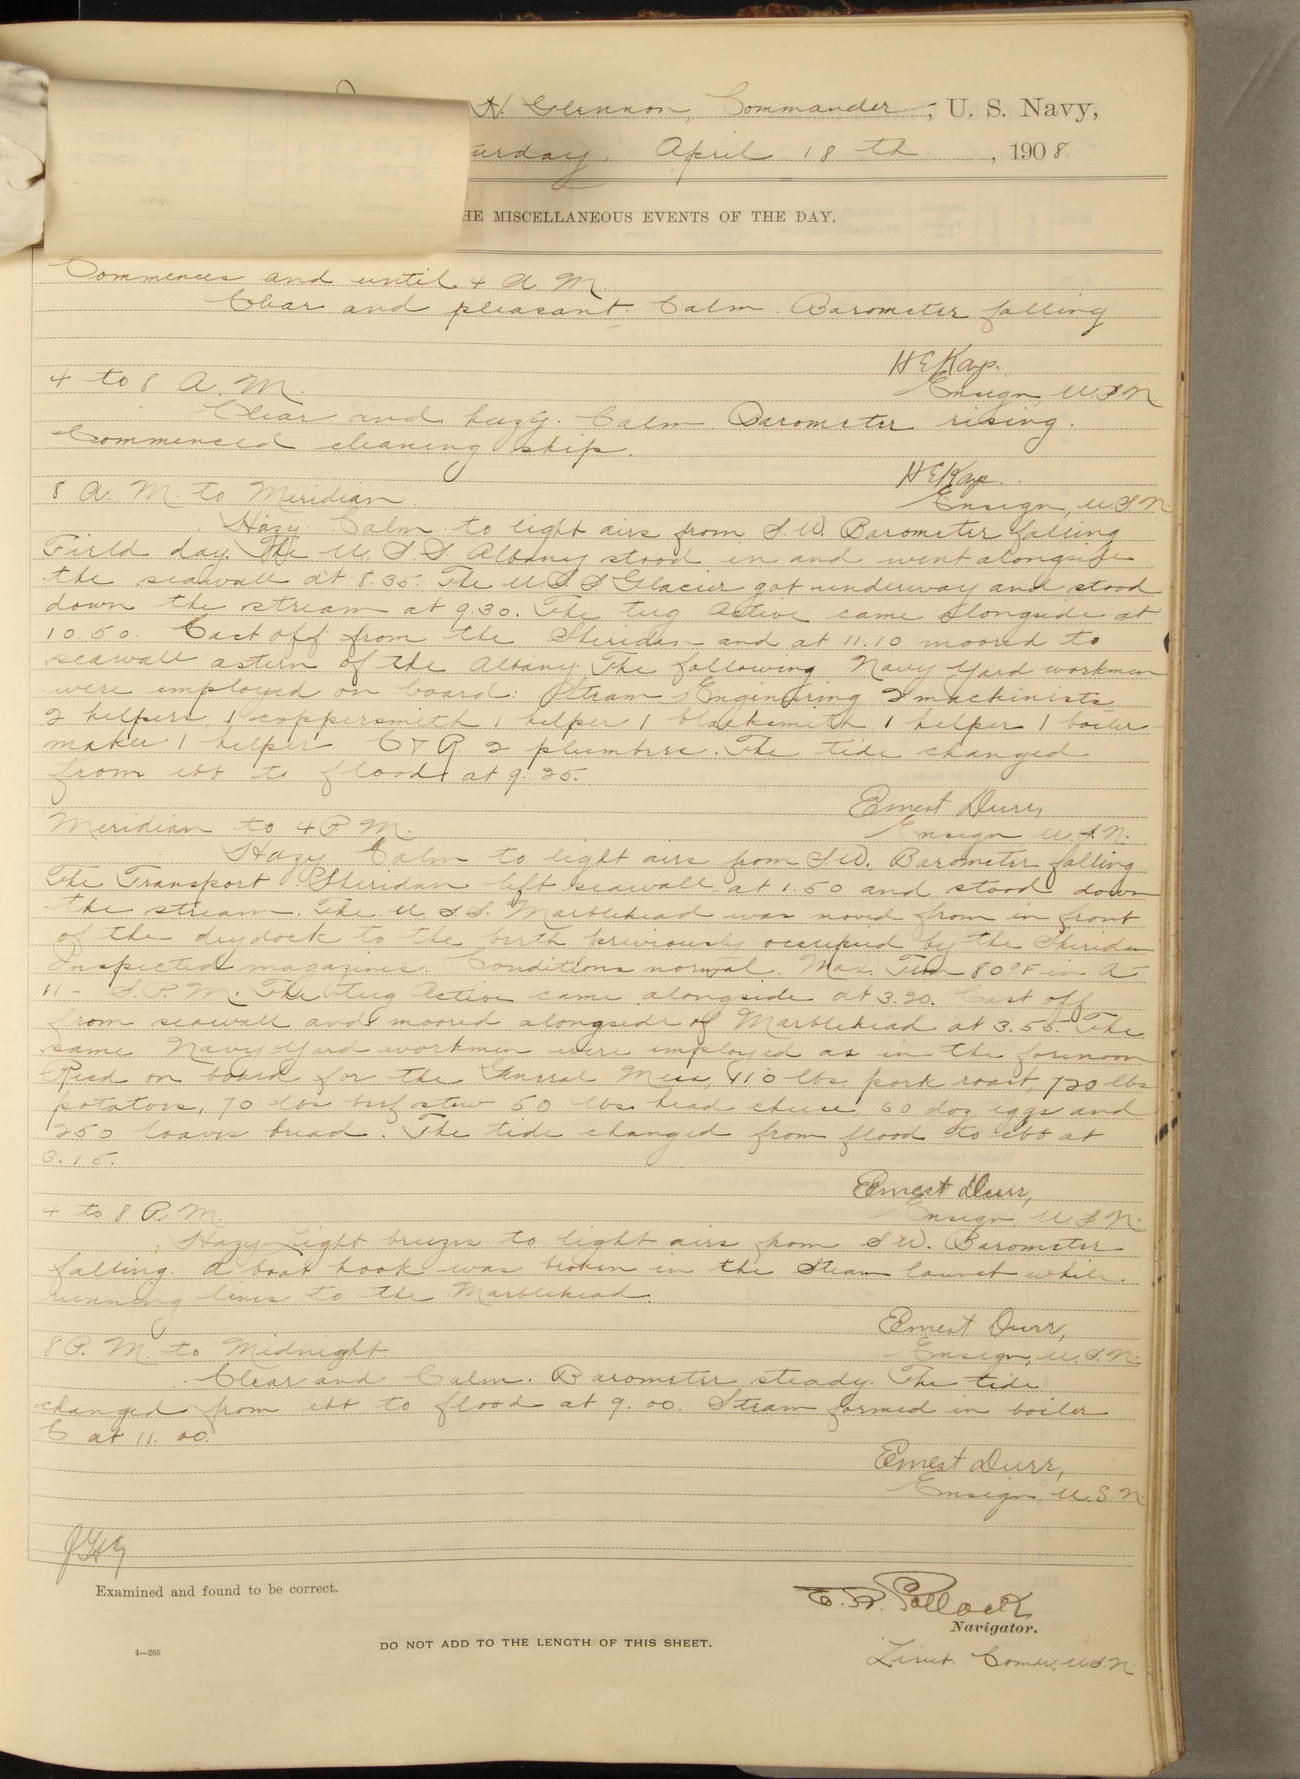 H. Glennon, Commander, U. S. Navy,
turday, April 18th, 1908.
HE MISCELLANEOUS EVENTS OF THE DAY.
Commences and until 4 A M.
Clear and pleasant. Calm. Barometer falling
H E Kays.
Ensign U.S.N
4 to 8 A. M.
Clear and hazy. Calm Barometer rising.
Commenced cleaning ship.
H E Kays.
Ensign, U.S.N
8 A. M. to Meridian
Hazy. Calm to light airs from S.W. Barometer falling
Field day. The U. S. S. Albany stood in and went alongside
the seawall at 8.35. The U.S.S Glacier got underway and stood
down the stream at 9.30. The tug Active came alongside at
10.50. Cast off from the Sheridan and at 11.10 moored to
seawall astern of the Albany. The following Navy Yard workmen
were employed on board: Steam Engineering 2 machinists
2 helpers, 1 coppersmith 1 helper 1 blacksmith 1 helper 1 boiler
maker 1 helper C & R. 2 plumbers. The tide changed
from ebb to flood at 9.25.
Ernest Durr,
Ensign U.S.N.
Meridian to 4 P. M.
Hazy Calm to light airs from S.W. Barometer falling
The Transport Sheridan left seawall at 1.50 and stood down
the stream. The U. S. S. Marblehead was moved from in front
of the drydock to the berth previously occupied by the Sheridan
Inspected magazines. Conditions normal. Max. Tem 80°F in A
11 - S.P.M. The tug Active came alongside at 3.20. Cast off
from seawall and moored alongside of Marblehead at 3.55. The
same Navy Yard workmen were employed as in the forenoon
Recd on board for the General Mess, 110 lbs pork roast, 720 lbs
potatoes, 70 lbs beef stew 50 lbs head cheese, 60 doz eggs and
250 loaves bread. The tide changed from flood to ebb at
3.15.
Ernest Durr,
Ensign U.S.N.
4 to 8 P. M.
Hazy Light breezes to light airs from S W. Barometer
falling. A boat hook was broken in the steam launch while
running lines to the Marblehead.
Ernest Durr,
Ensign, U.S.N.
8 P. M. to Midnight.
Clear and Calm. Barometer steady. The tide
changed from ebb to flood at 9.00. Steam formed in boiler
C at 11.00.
Ernest Durr,
Ensign, U.S.N.
Examined and found to be correct.
E. R. Pollock
Navigator.
4—265
DO NOT ADD TO THE LENGTH OF THIS SHEET.
Lieut. Comdr, U.S.N.